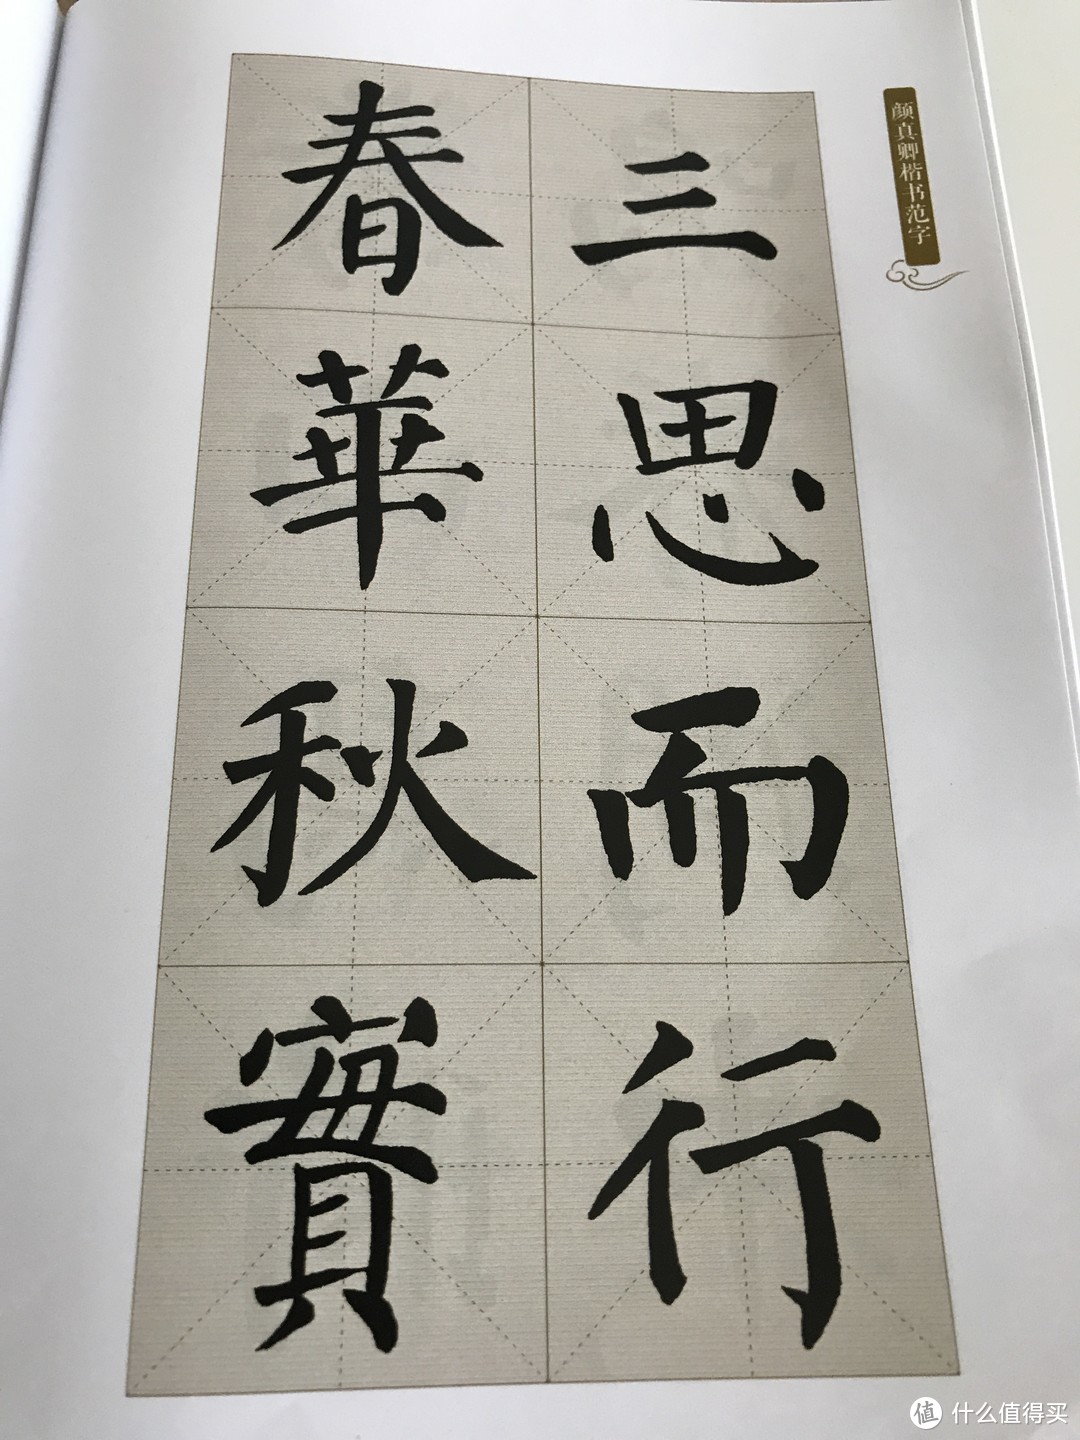 颜真卿楷书范字
三思而行
春華秋實
值 什么值得买